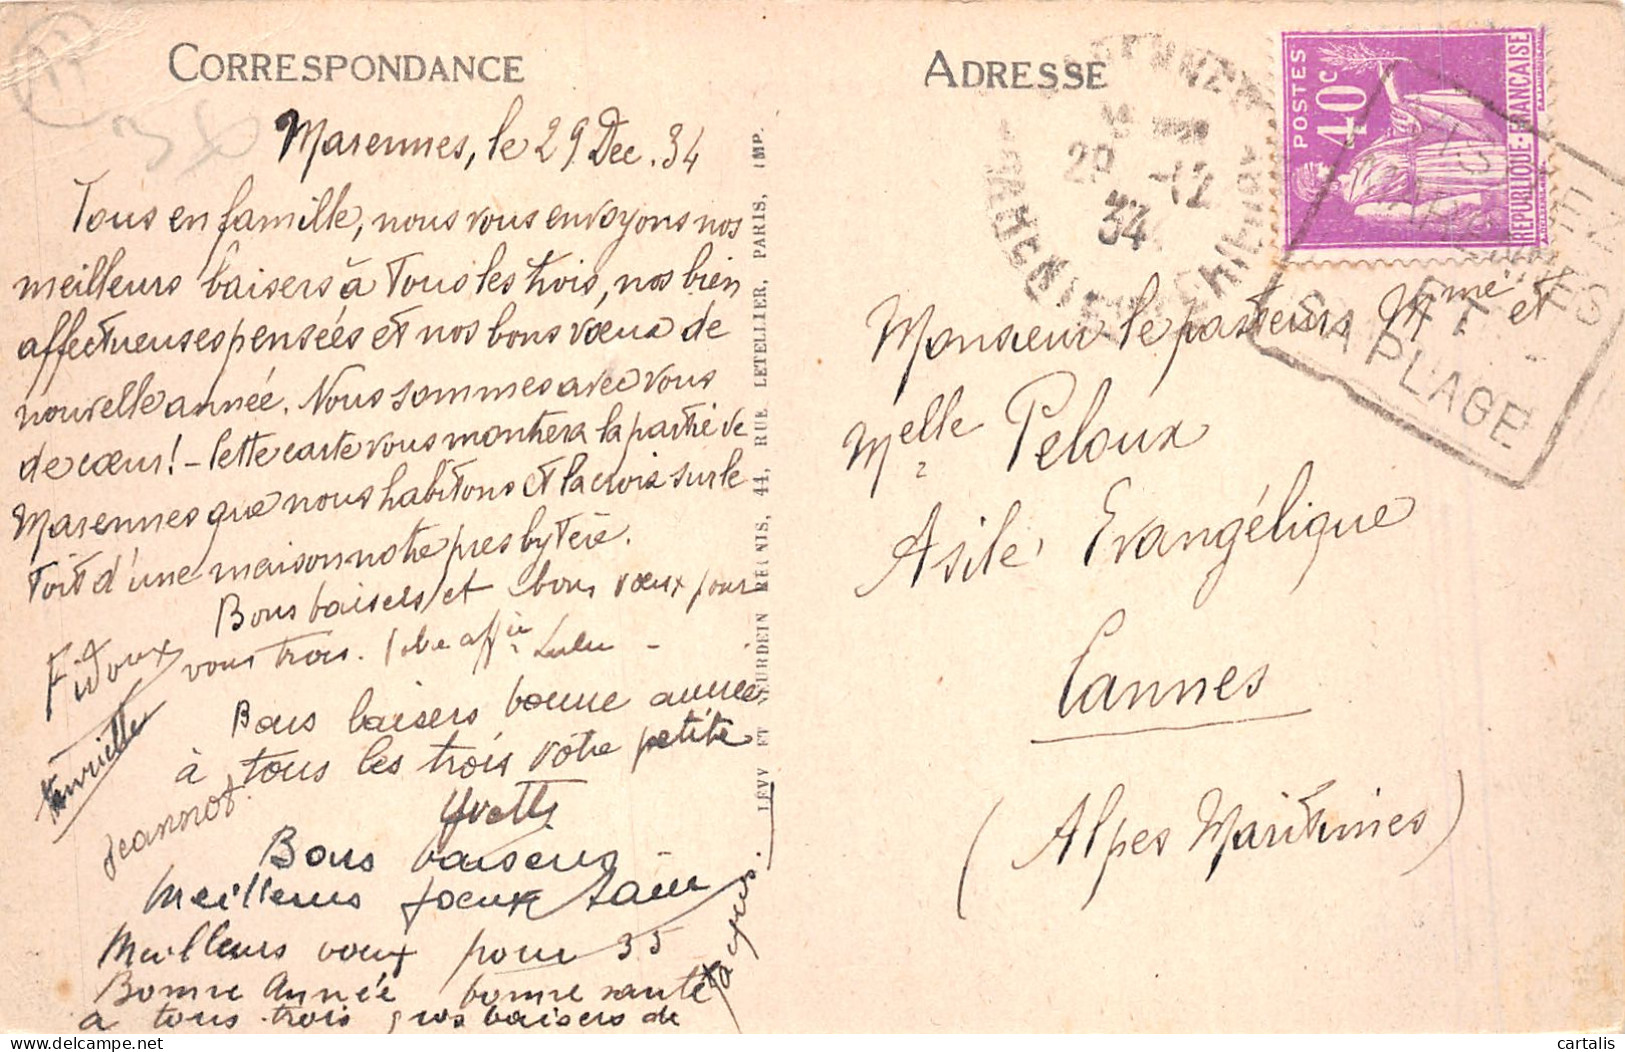 CORRESPONDANCE
Marennes, le 29 Dec. 34
Tous en famille, nous vous envoyons nos
meilleurs baisers à Tous les trois, nos bien
affectueuses pensées et nos bons vœux de
nouvelle année. Nous sommes avec vous
de cœur! - Cette carte vous montrera la partie de
Marennes que nous habitons et la croix sur le
Toit d'une maison notre presbytère.
Bons baisers et bons vœux pour
vous trois. affie Lulu -
Bons baisers bonne année
à tous les trois votre petite
Yvette
Fidoux
Henriette
Jeannot.
Bons baisers
Meilleurs voeux
Meilleurs voeux pour 35
Bonne Année bonne santé
à tous trois gros baisers de
LÉVY ET NEURDEIN RÉUNIS, 44, RUE LETELLIER, PARIS, IMP.
ADRESSE
29 -12
34
POSTES
40c
REPUBLIQUE-FRANÇAISE
ET
SA PLAGE
Monsieur le pasteur, Mme et
Melle Peloux
Asile Evangélique
Cannes
(Alpes Maritimes)
cartalis
www.delcampe.net